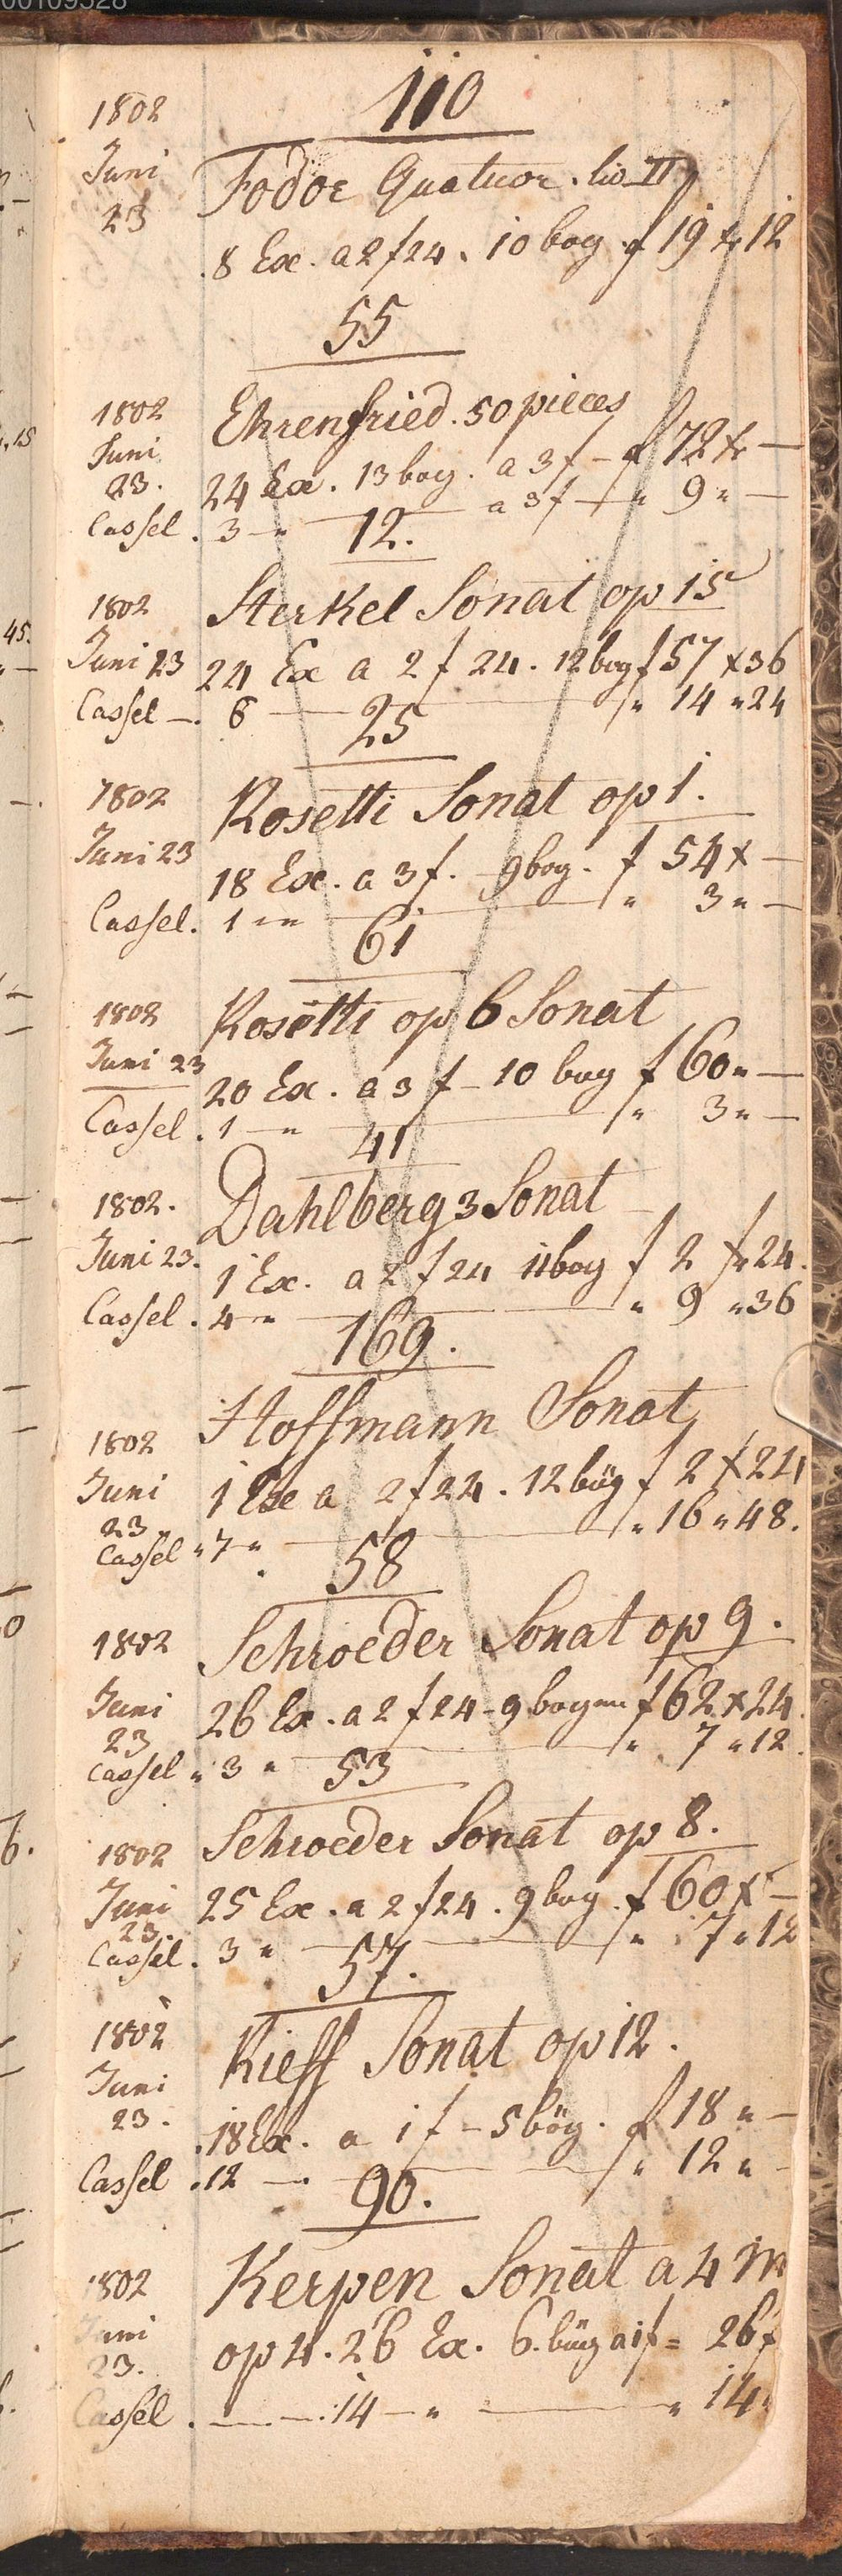 00109528
110
1802 Fodor Quatuor. liv II
Juni
23 8 Ex. a 2 f 24. 10 bog. f 19 xr 12
55
1802 Ehrenfried. 50 pieces
Juni
23. 24 Ex. 13 bog. a 3 f – f 72 xr —
Cassel. 3 — " — a 3 f — " 9 " —
12.
1802 Sterkel Sonat op 15
Juni 23 24 Ex a 2 f 24. 12 bog f 57 x 36
Cassel —. 6 — " 14 " 24
25
1802 Rosetti Sonat op 1.
Juni 23 18 Ex. a 3 f. – 9 bog. f 54 x —
Cassel. 1 — " — " 3 " —
61
1802 Rosetti op 6 Sonat
Juni 23 20 Ex. a 3 f – 10 bog f 60 " —
Cassel. 1 — " — " 3 " —
41
1802. Dahlberg 3 Sonat
Juni 23. 1 Ex. a 2 f 24 11 bog f 2 xr 24.
Cassel. 4 — " — " 9 " 36
169.
1802 Hoffmann Sonat
Juni 1 Ex a 2 f 24. 12 bög f 2 x 24
23
Cassel " 7 " — " 16 " 48.
58
1802 Schroeder Sonat op 9.
Juni 26 Ex. a 2 f 24 – 9 bogen f 62 x 24.
23
Cassel " 3 " — " 7 " 12.
53
1802 Schroeder Sonat op 8.
Juni 25 Ex. a 2 f 24. 9 bog. f 60 x —
23.
Cassel. 3 " — " 7 " 12
57.
1802 Kieff Sonat op 12.
Juni
23. 18 Ex. a 1 f – 5 bög. f 18 " —
Cassel. 12 — " 12 " -
90.
1802 Kerpen Sonat a 4 m
Juni
23. op 4. 26 Ex. 6. bög a 1 f = 26 f
Cassel. — 14 — " — " 14 "